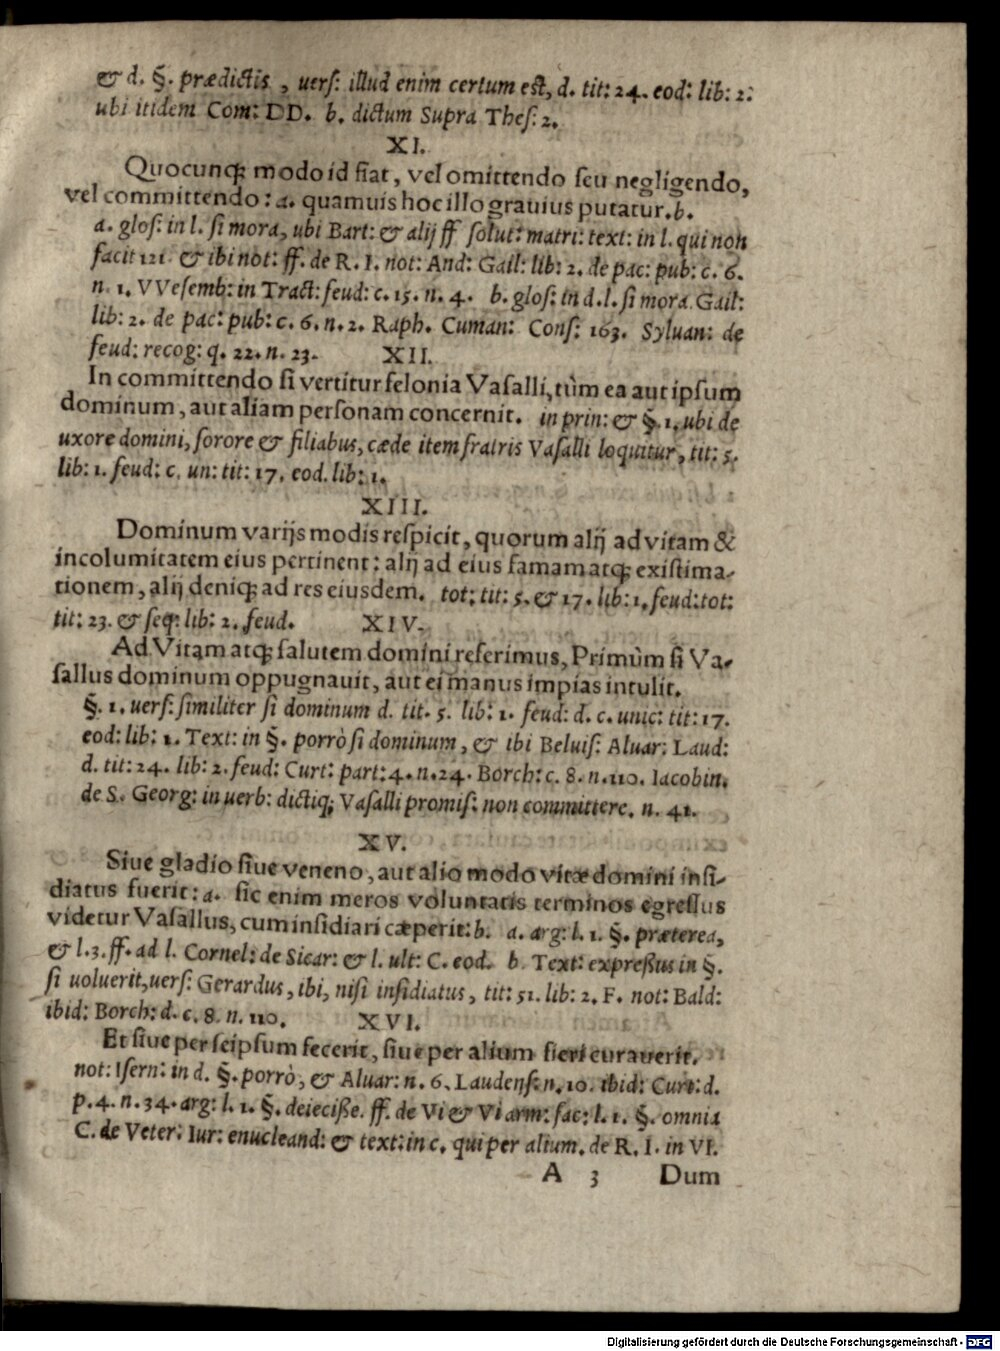 & d. §. prædictis, uerſ: illud enim certum eſt, d. tit: 24. eod: lib: 2:
ubi itidem Com: DD. b. dictum Supra Theſ: 2.
XI.
Quocunq; modo id fiat, vel omittendo ſeu negligendo,
vel committendo: a. quamuis hoc illo grauius putatur. b.
a. gloſ: in l. ſi mora, ubi Bart: & alij ff ſolut: matri: text: in l. qui non
facit 121. & ibi not: ff. de R. I. not: And: Gail: lib: 2. de pac: pub: c. 6.
n. 1. VVeſemb: in Tract: feud: c. 15. n. 4. b. gloſ: in d. l. ſi mora Gail:
lib: 2. de pac: pub: c. 6. n. 2. Raph. Cuman: Conſ: 163. Syluan: de
feud: recog: q. 22. n. 23. XII.
In committendo ſi vertitur felonia Vaſalli, tùm ea aut ipſum
dominum, aut aliam perſonam concernit. in prin: & §. 1. ubi de
uxore domini, ſorore & filiabus, cæde item fratris Vaſalli loquitur, tit: 5.
lib: 1. feud: c. un: tit: 17. eod. lib: 1.
XIII.
Dominum varijs modis reſpicit, quorum alij ad vitam &
incolumitatem eius pertinent: alij ad eius famam atq; exiſtima-
tionem, alij deniq; ad res eiusdem. tot: tit: 5. & 17. lib: 1. feud: tot:
tit: 23. & ſeq: lib: 2. feud. XIV.
Ad Vitam atq; ſalutem domini referimus, Primùm ſi Va-
ſallus dominum oppugnauit, aut ei manus impias intulit.
§. 1. uerſ: ſimiliter ſi dominum d. tit. 5. lib: 1. feud: d. c. unic: tit: 17.
eod: lib: 1. Text: in §. porrò ſi dominum, & ibi Beluiſ: Aluar: Laud:
d. tit: 24. lib: 2. feud: Curt: part: 4. n. 24. Borch: c. 8. n. 110. Iacobin.
de S. Georg: in uerb: dictiq; Vaſalli promiſ: non committere. n. 41.
XV.
Siue gladio ſiue veneno, aut alio modo vitæ domini inſi-
diatus fuerit: a. ſic enim meros voluntatis terminos egreſſus
videtur Vaſallus, cum inſidiari cæperit: b. a. arg: l. 1. §. præterea,
& l. 3. ff. ad l. Cornel: de Sicar: & l. ult: C. eod. b. Text: expreßus in §.
ſi uoluerit, uerſ: Gerardus, ibi, niſi inſidiatus, tit: 51. lib: 2. F. not: Bald:
ibid: Borch: d. c. 8. n. 110. XVI.
Et ſiue per ſeipſum fecerit, ſiue per alium fieri curauerit.
not: Iſern: in d. §. porrò, & Aluar: n. 6. Laudenſ: n. 10. ibid: Curt: d.
p. 4. n. 34. arg: l. 1. §. deieciße. ff. de Vi & Vi arm: fac: l. 1. §. omnia
C. de Veter: Iur: enucleand: & text: in c. qui per alium. de R. I. in VI.
A 3 Dum
Digitalisierung gefördert durch die Deutsche Forschungsgemeinschaft - DFG